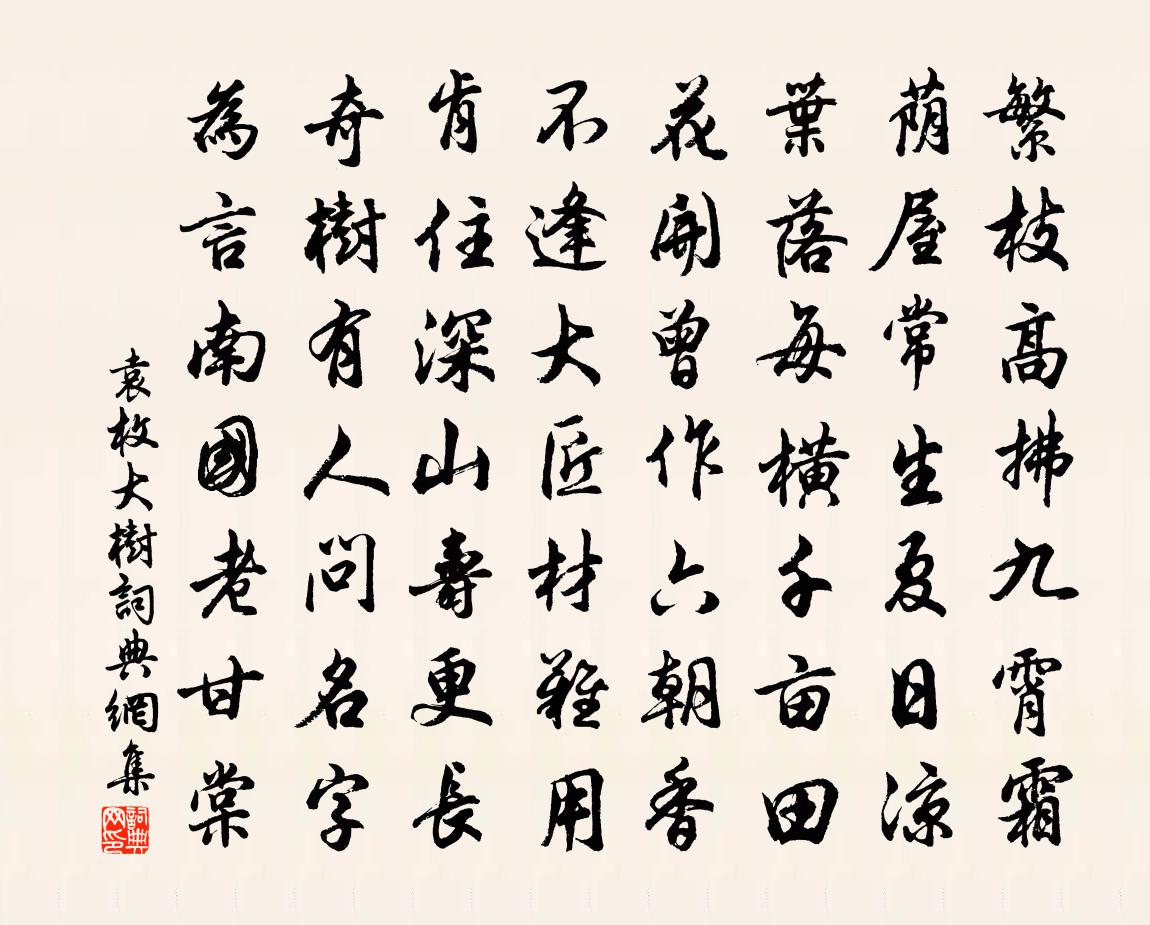 繁枝高拂九霄霜
荫屋常生夏日凉
葉落每横千亩田
花開曾作六朝香
不逢大匠材難用
肯住深山壽更長
奇樹有人問名字
為言南國老甘棠
袁枚大樹詞典網集
詞典网印